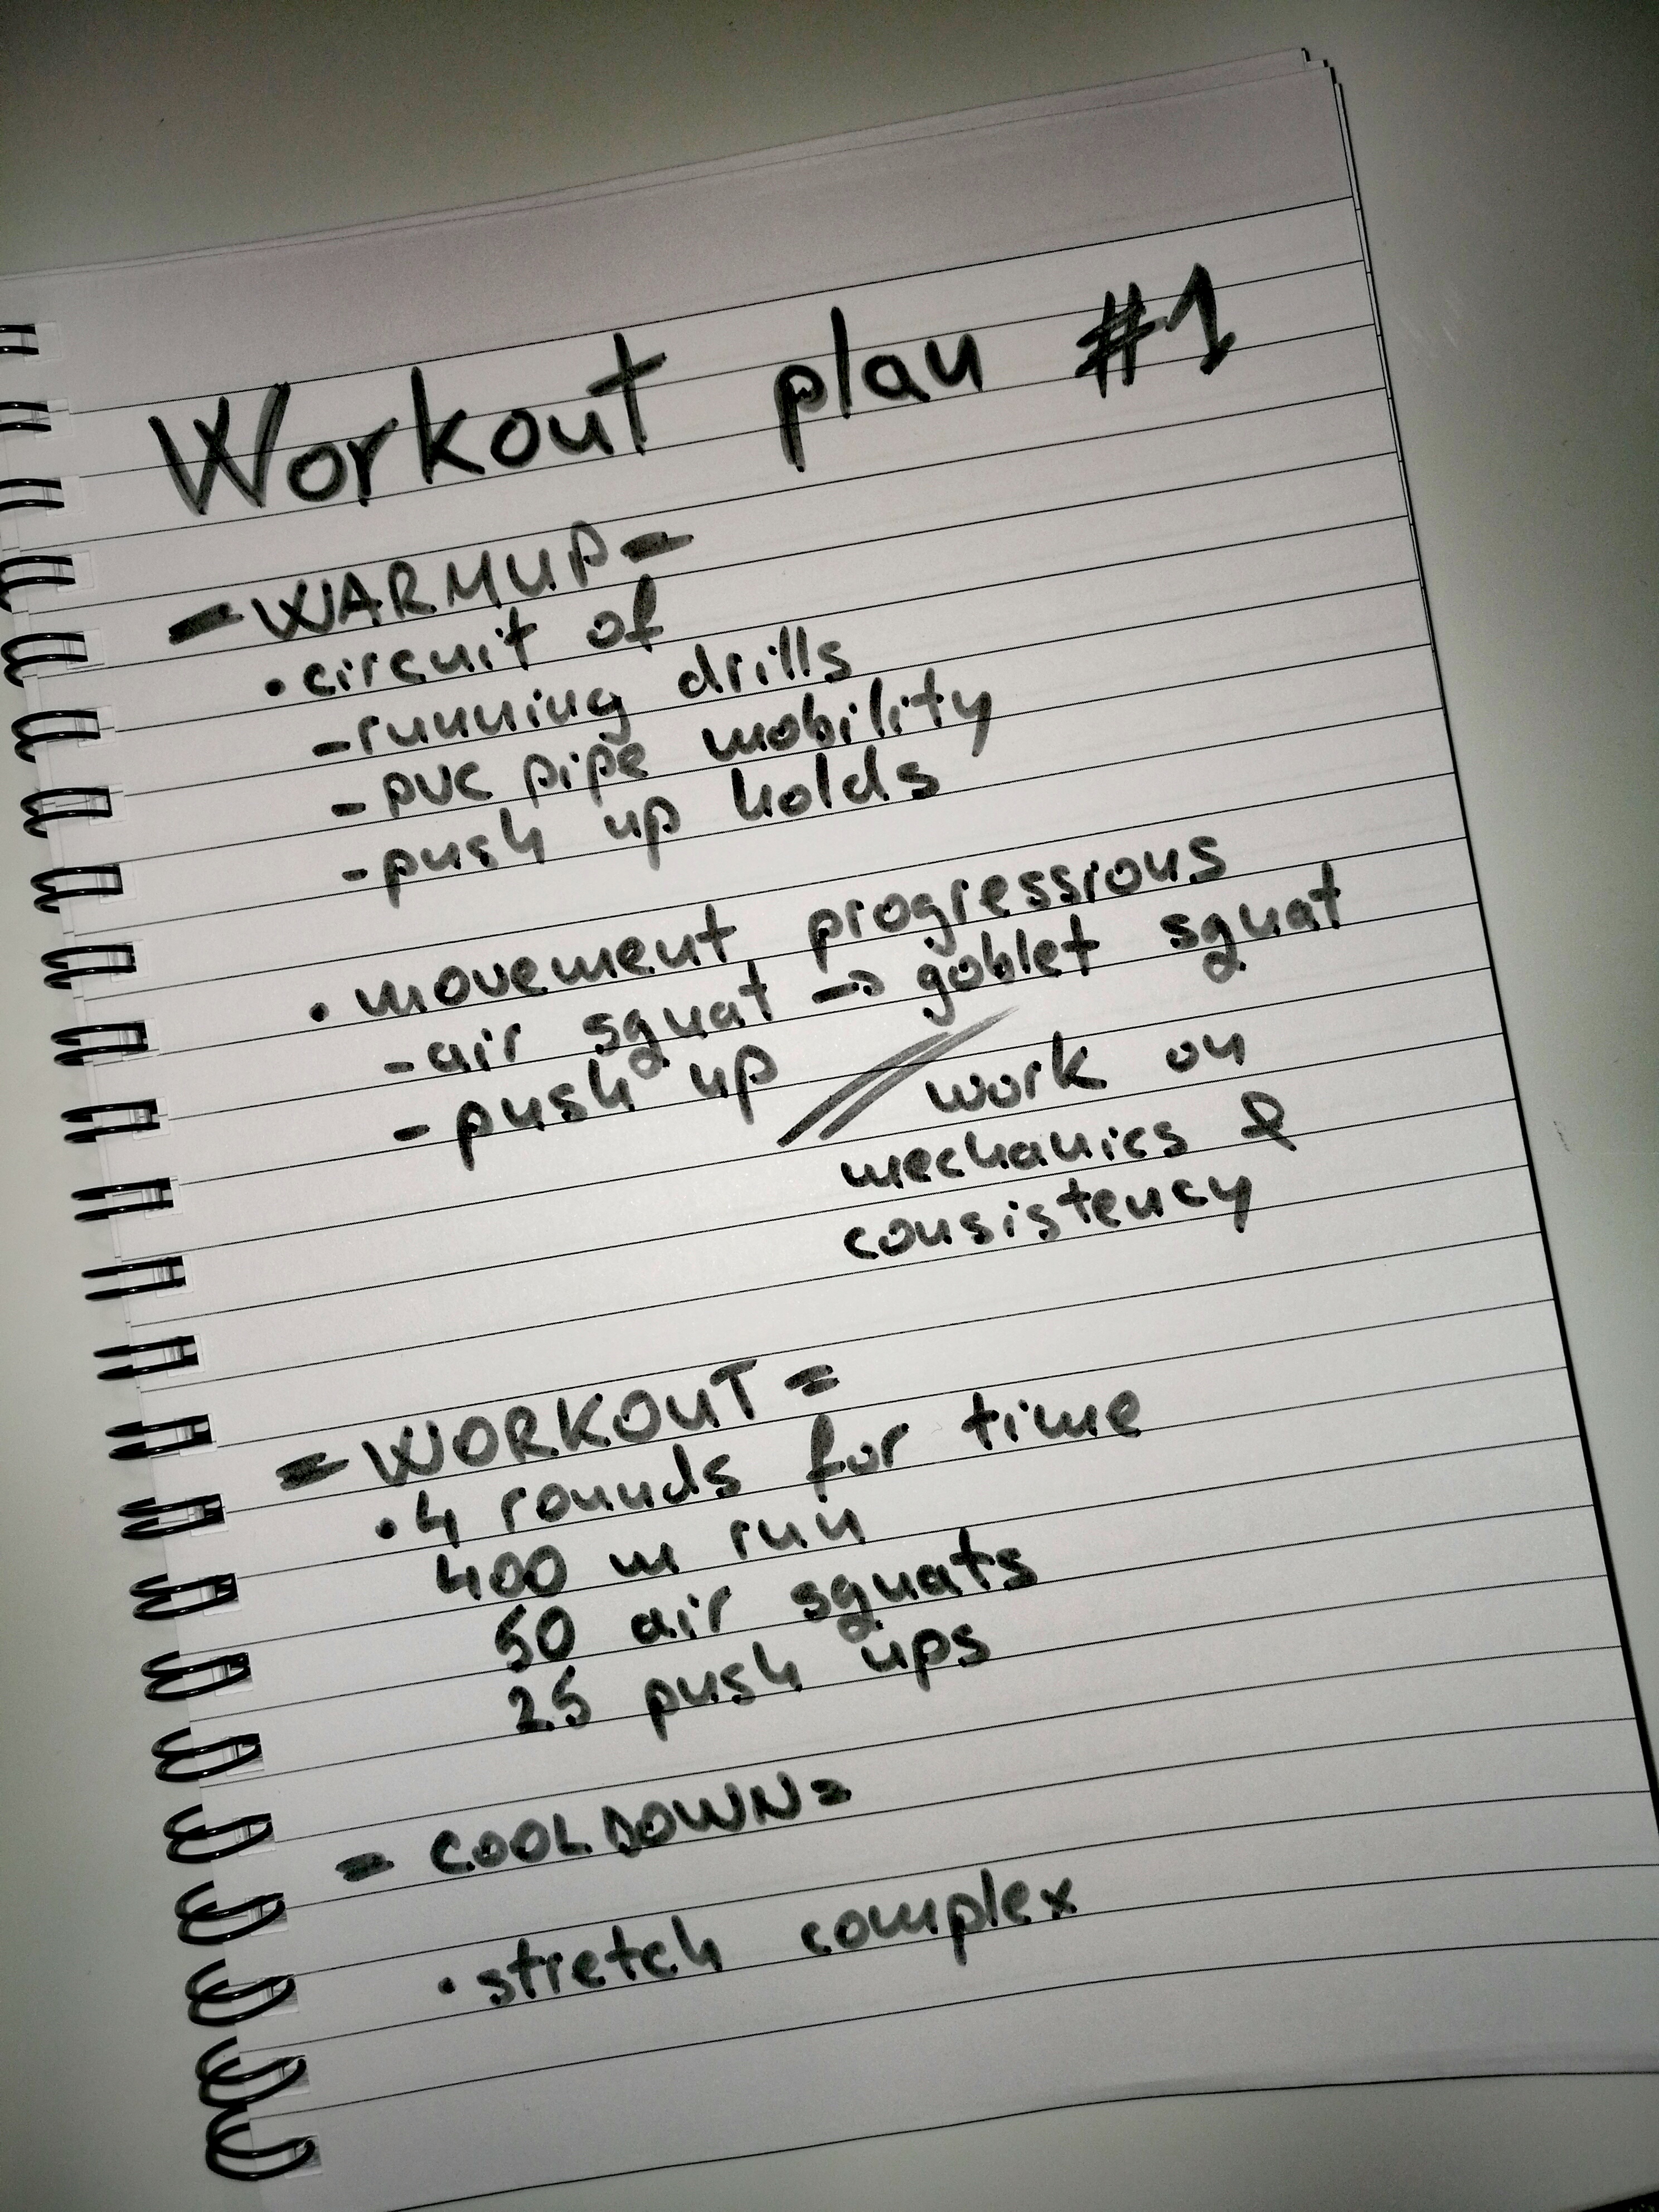 Workout plan #1
- WARMUP -
• circuit of
- running drills
- PVC pipe mobility
- push up holds
• movement progressions
- air squat → goblet squat
- push up // work on
mechanics &
consistency
= WORKOUT =
• 4 rounds for time
400 m run
50 air squats
25 push ups
= COOLDOWN =
• stretch complex